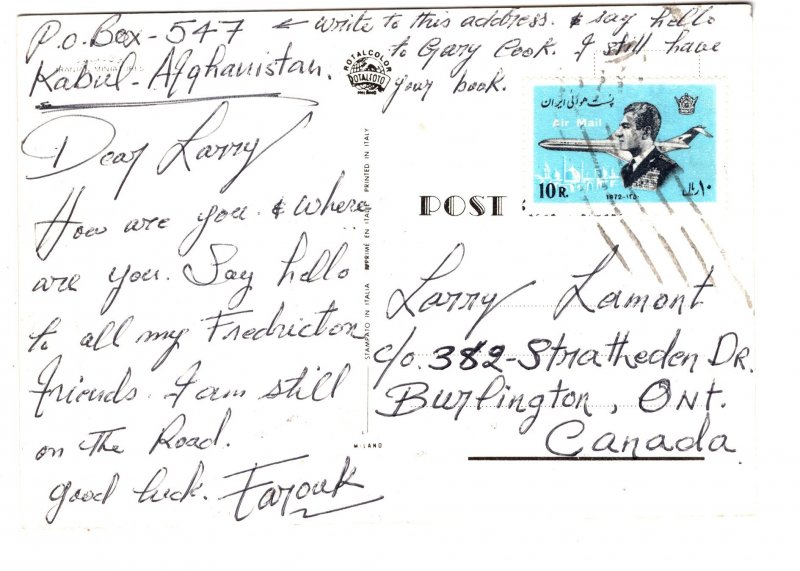 P.O. Box - 547 ← write to this address. & say hello
to Gary Cook. I still have
your book.
Kabul - Afghanistan.
Dear Larry
How are you. & where
are you. Say hello
to all my Fredricton
friends. I am still
on the Road.
good luck. Farouk
ROTALCOLOR
ROTALFOTO
STAMPATO IN ITALIA IMPRIMÉ EN ITALIE PRINTED IN ITALY
MILANO
POST
پست هوائی ایران
Air Mail
10 R.
1972-۱۳۵۰
۱۰ ریال
Larry Lamont
c/o. 382-Stratheden DR.
Burlington, ONT.
Canada